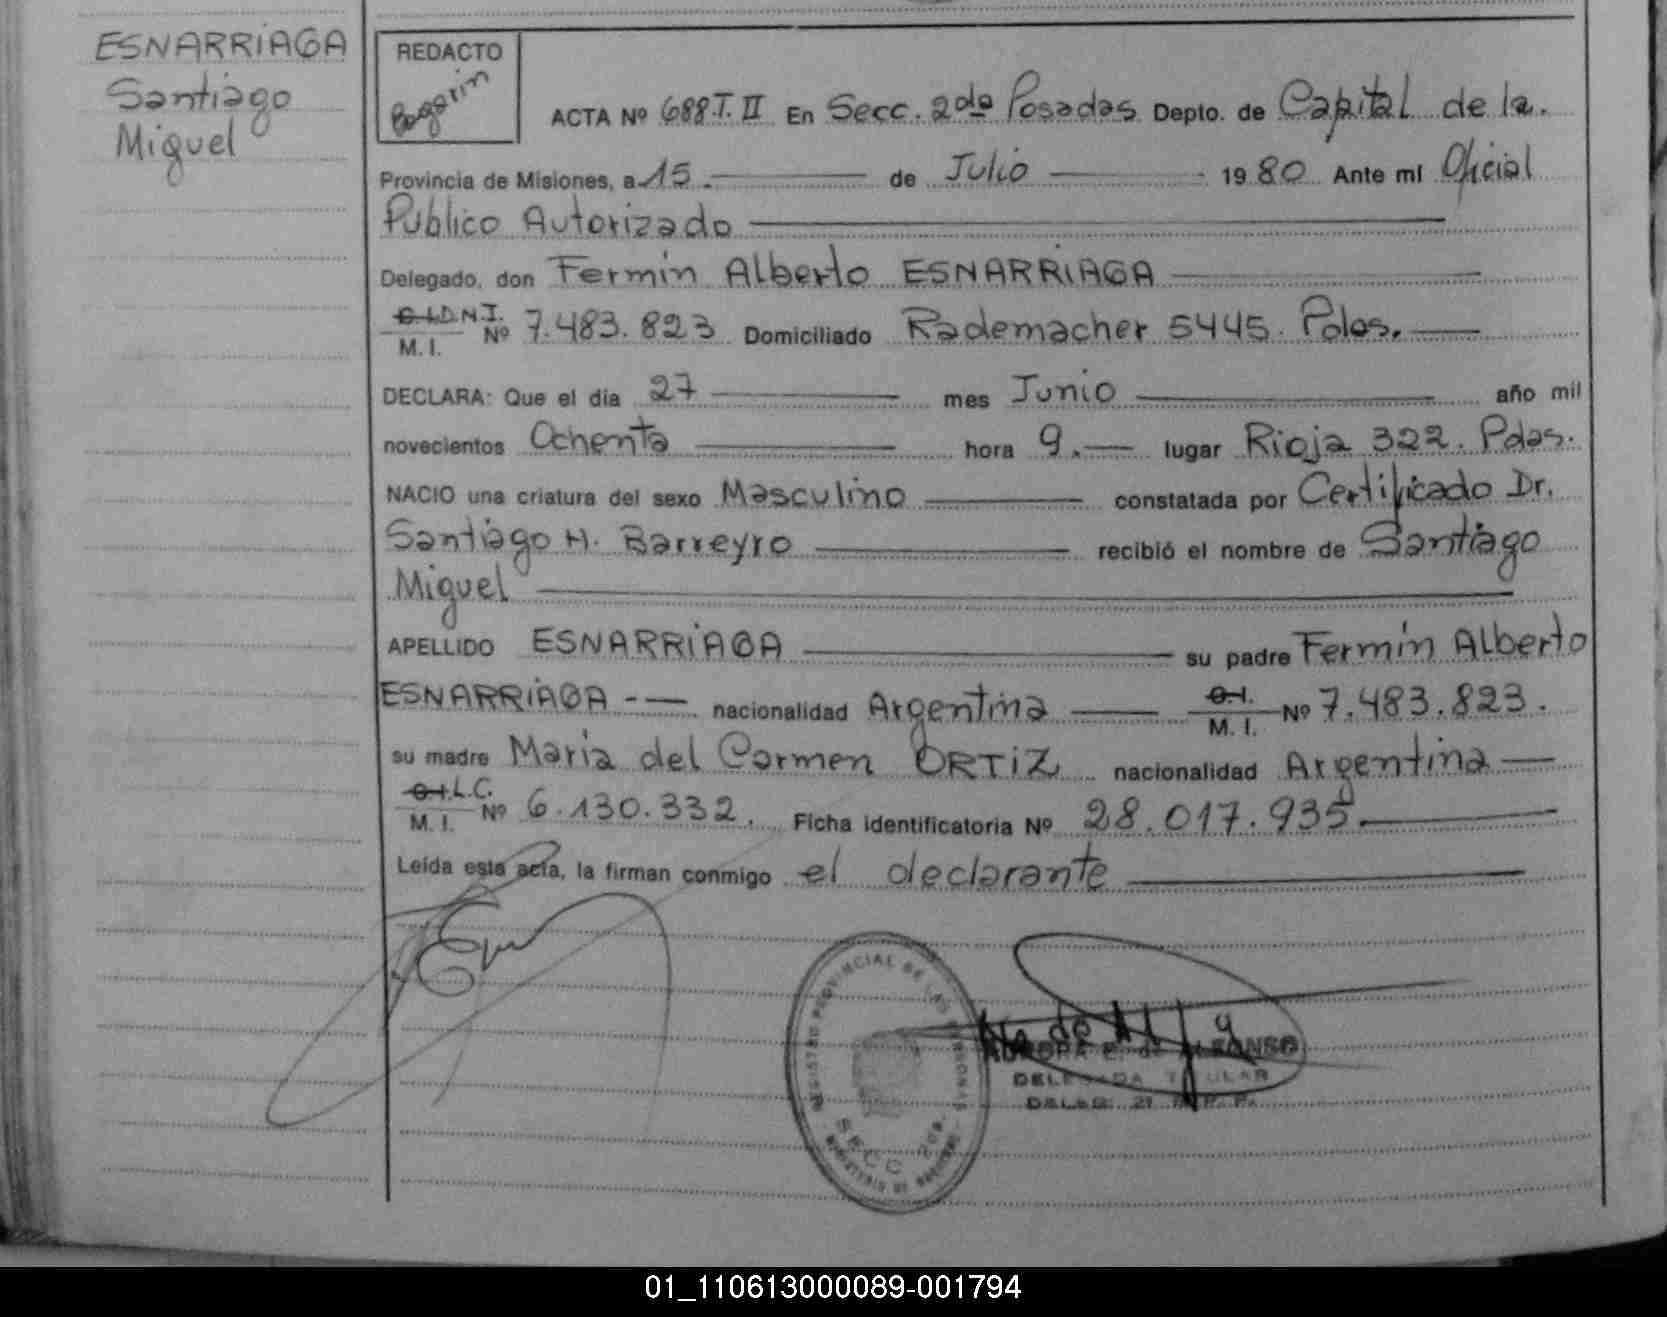 ESNARRIAGA
Santiago
Miguel
REDACTO
ACTA Nº 688.T.II En Secc. 2da Posadas Depto. de Capital de la.
Provincia de Misiones, a 15.— de Julio — 1980 Ante mí Oficial
Público Autorizado —
Delegado, don Fermin Alberto ESNARRIAGA —
C.I.D.N.I. Nº 7.483.823 Domiciliado Rademacher 5445. Pdas.—
M. I.
DECLARA: Que el día 27 — mes Junio — año mil
novecientos Ochenta — hora 9.— lugar Rioja 322. Pdas.
NACIO una criatura del sexo Masculino — constatada por Certificado Dr.
Santiago H. Barreyro — recibió el nombre de Santiago
Miguel —
APELLIDO ESNARRIAGA — su padre Fermin Alberto
ESNARRIAGA -- — nacionalidad Argentina — C.I. Nº 7.483.823.
M. I.
su madre Maria del Carmen ORTIZ nacionalidad Argentina —
C.I.L.C. Nº 6.130.332. Ficha identificatoria Nº 28.017.935.—
M. I.
Leída esta acta, la firman conmigo el declarante —
REGISTRO PROVINCIAL DE LAS PERSONAS
SECC 2da.
MINISTERIO DE GOBIERNO
AURORA E. de ALFONSO
DELEGADA TITULAR
01_110613000089-001794